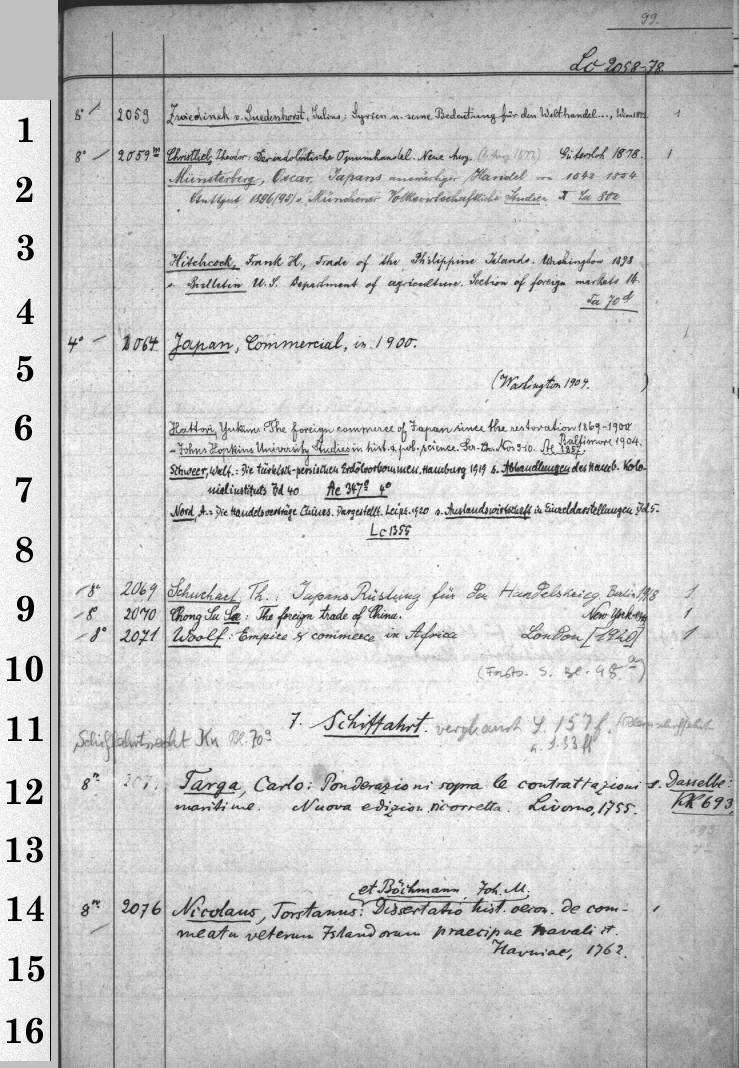 99.
Lc 2058-78.
1
2
3
4
5
6
7
8
9
10
11
12
13
14
15
16
8° 2059 Zwiedinek v. Suedenhorst, Julius: Syrien u. seine Bedeutung für den Welthandel..., Wien 1873. 1
8° 2059m Christlieb, Theodor: Der indobritische Opiumhandel. Neue Ausg. Gütersloh 1878. 1
Münsterberg, Oscar, Japans auswärtiger Handel von 1542-1854
Stuttgart 1896 s. Münchener Volkswirtschaftliche Studien
Hitchcock, Frank H., Trade of the Philippine Islands. Washington 1898
s. Bulletin U. S. Department of agriculture. Section of foreign markets 14.
Ta 70d
4° 2064 Japan, Commercial, in 1900.
(Washington 1904. )
Hattori, Yukimi: The foreign commerce of Japan since the restoration 1869-1900
Baltimore 1904.
- Johns Hopkins University Studies in hist. & pol. science. Ser. Nos 9-10.
Schweer, Walt.: Die türkisch-persischen Erdölvorkommen. Hamburg 1919 s. Abhandlungen des Hamb. Kolo-
nialinstituts Bd 40 Ae 347g 4°
Nord, A.: Die Handelsverträge Chinas. Dargestellt. Leipz. 1920 s. Auslandswirtschaft in Einzeldarstellungen Bd 5.
Lc 1355
8° 2069 Schuchart, Th.: Japans Rüstung für den Handelskrieg. Berlin 1918 1
8° 2070 Chong Su See: The foreign trade of China. New York 1919 1
8° 2071 Woolf: Empire & commerce in Africa London [1920] 1
(Forts. s. Bl. 98a)
7. Schiffahrt.
Schiffahrtsrecht Kn Bl. 70a
8° Targa, Carlo: Ponderazioni sopra le contrattazioni s. Dasselbe:
maritime. Nuova edizion. ricorretta. Livorno, 1755. KK 693
et Böchmann, Joh. M.
8° 2076 Nicolaus, Torstanus: Dissertatio hist. oecon. de com-
meatu veterum Islandorum praecipue navali
Havniae, 1762.